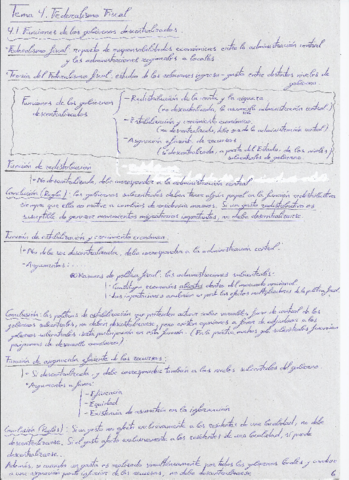 Tema 4. Federalismo Fiscal
4.1 Funciones de los gobiernos descentralizados
Federalismo fiscal: reparto de responsabilidades económicas entre la administración central
y las administraciones regionales o locales
Teoría del Federalismo fiscal: estudia de las relaciones ingreso-gasto entre distintos niveles de
gobierno
Funciones de los gobiernos
descentralizados
- Redistribución de la renta y la riqueza
(no descentralizada, la asume la administración central)
- Estabilización y crecimiento económico
(no descentralizada, debe la administración central)
- Asignación eficiente de recursos
(descentralizada, a parte del Estado, de los niveles
subcentrales de gobierno)
Función de redistribución
No descentralizada, debe corresponder a la administración central
Conclusión (Regla): los gobiernos subcentrales deben tener algún papel en la función redistributiva
ya que ella no motive a cambios de residencia masivos. Si un gasto redistributivo es
susceptible de provocar movimientos migratorios importantes, no debe descentralizarse
Función de estabilización y crecimiento económico
- No debe ser descentralizada, debe corresponder a la administración central.
- Argumentos:
Razones de política fiscal: las administraciones subcentrales:
- Constituyen economías abiertas dentro del mercado nacional
- Sus importaciones conllevan un gasto los efectos multiplicadores de la política fiscal
Conclusión: las políticas de estabilización que pretenden actuar sobre variables fuera de control de los
gobiernos subcentrales, no deberán descentralizarse, pero existen opciones a favor de adjudicar a los
gobiernos subcentrales cierta participación en esta función. (En la práctica, muchos gob. subcentrales financian
programas de desarrollo económico)
Función de asignación eficiente de los recursos:
- Sí descentralizada y debe corresponder también a los niveles subcentrales del gobierno
- Argumentos a favor:
- Eficiencia
- Equidad
- Existencia de asimetría en la información
Conclusión (Regla): Si un gasto no afecta exclusivamente a los residentes de una localidad, no debe
descentralizarse. Si el gasto afecta exclusivamente a los residentes de una localidad, sí puede
descentralizarse.
Además, si cuando un gasto es realizado simultáneamente por todos los gobiernos locales y conduce
a una asignación poco eficiente de los recursos, no debe descentralizarse